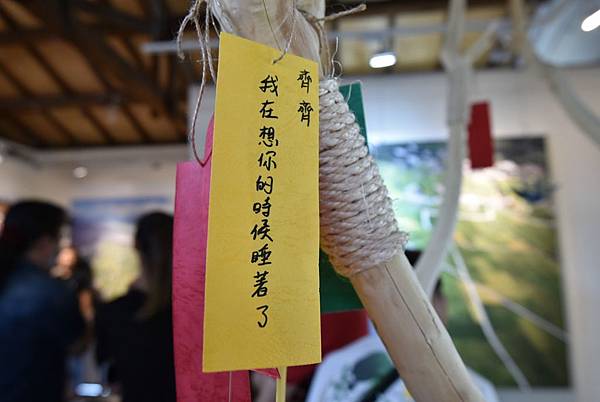 齊齊
我在想你的時候睡著了